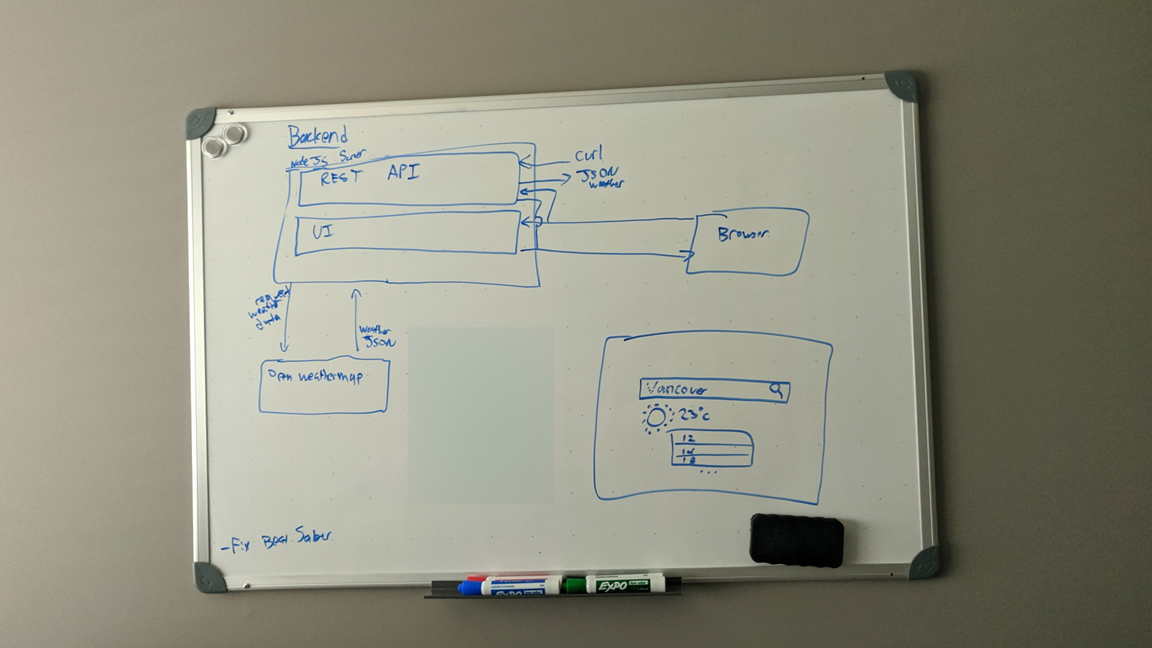 Backend
Node JS Server
REST API
UI
curl
JSON
weather
Browser
request
weather
data
weather
JSON
Open weathermap
Vancouver
23°C
12
14
16
...
-Fix Beat Saber
EXPO
EXPO